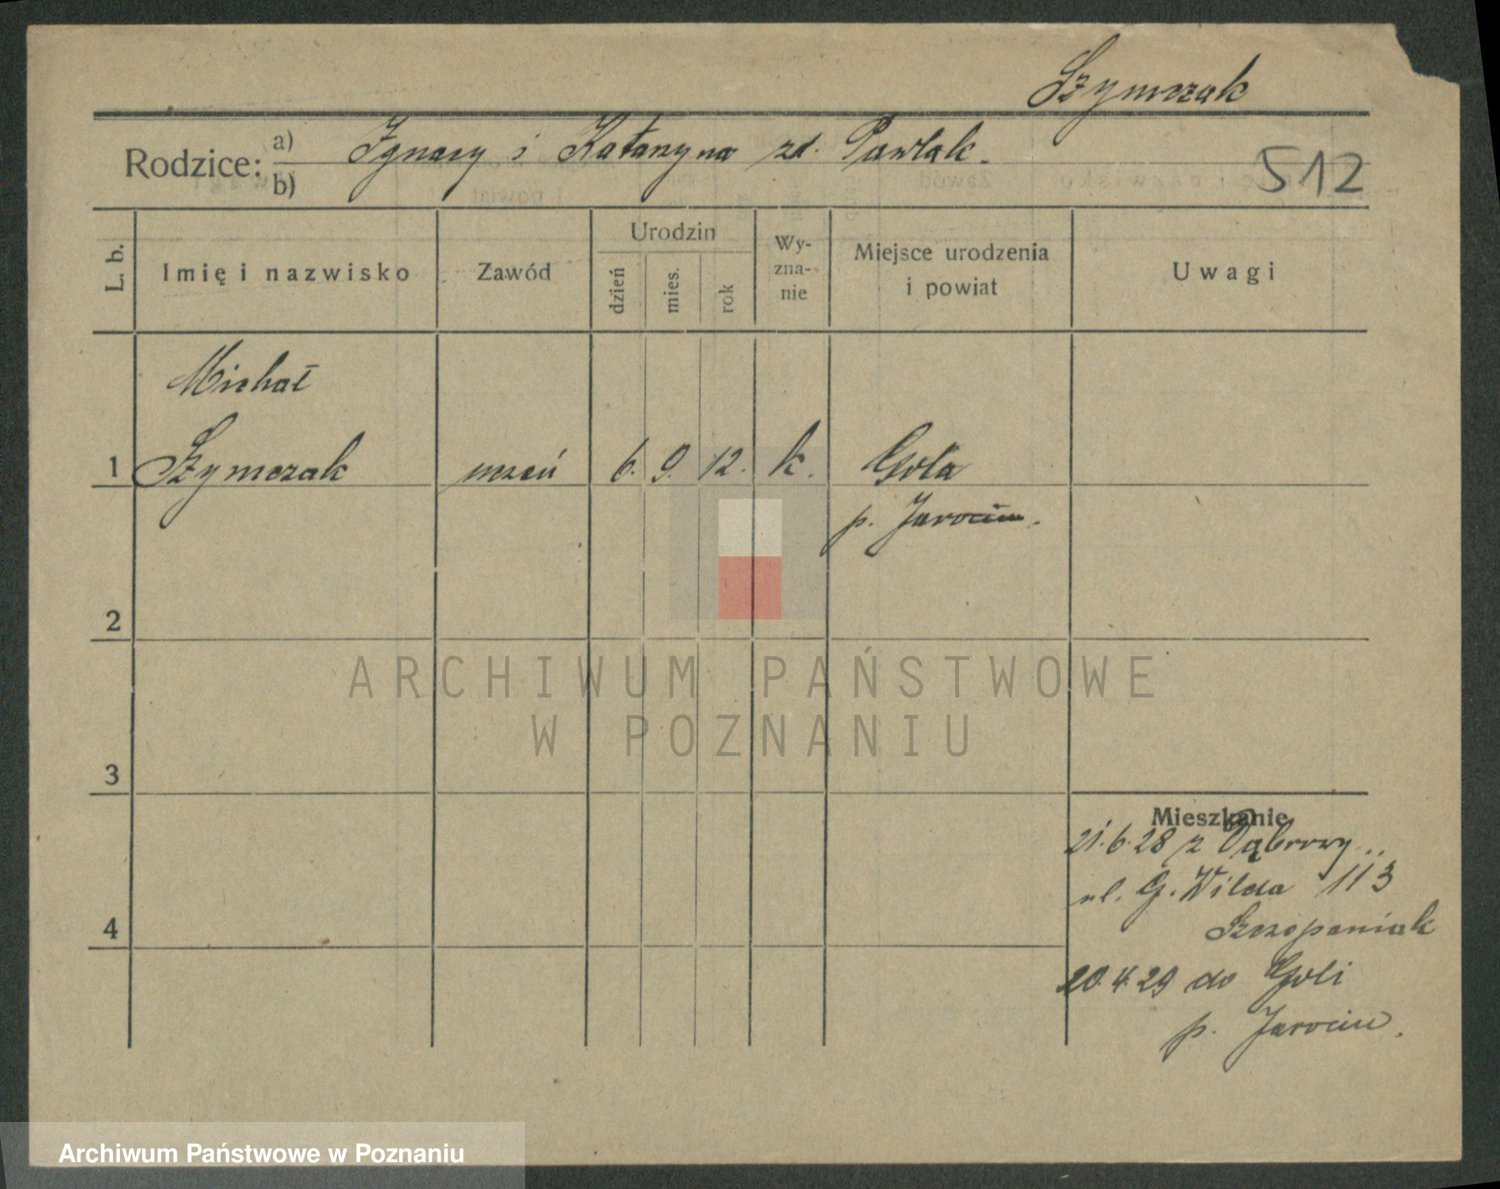 Szymczak
Rodzice: a) Ignacy i Katarzyna zd. Pawlak.
b)
512
L. b.
Imię i nazwisko
Zawód
Urodzin
dzień
mies.
rok
Wy-
zna-
nie
Miejsce urodzenia
i powiat
Uwagi
Michał
1 Szymczak uczeń 6. 9. 12. k. Gola
p. Jarocin.
2
3
4
Mieszkanie
21.6.28 z Dąbrowy
ul. G. Wilda 113
Szczepaniak
20.4.29 do Goli
p. Jarocin.
ARCHIWUM PAŃSTWOWE
W POZNANIU
Archiwum Państwowe w Poznaniu